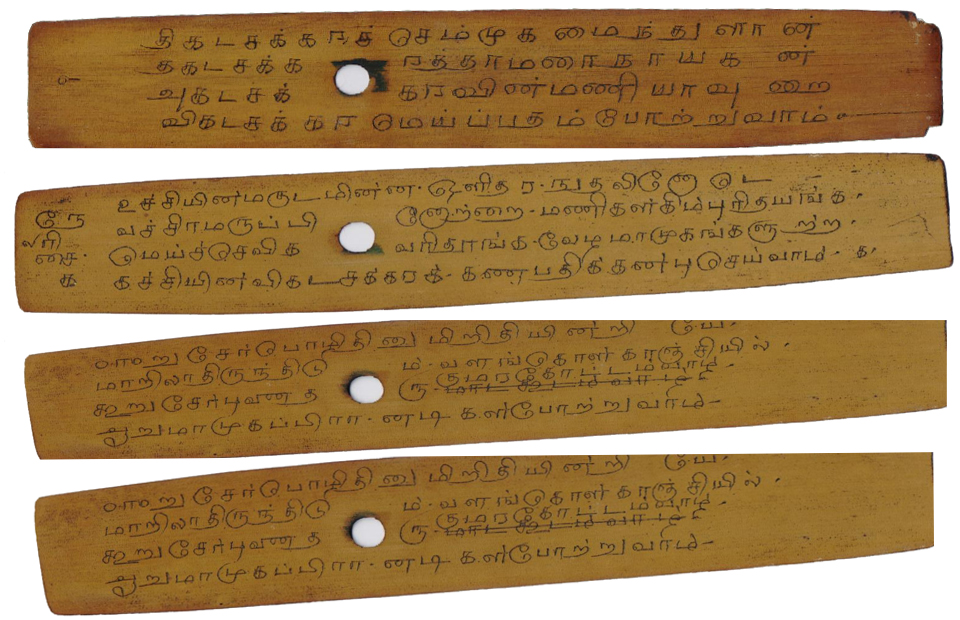 திகடசக்கரச் செம்முகமைந்துளான்
சகடசக்க ரத்தாமரைநாயகன்
அகடசக் கரவிண்மணி யாவுறை
விகடசக்கரமெய்ப்பதம்போற்றுவாம்.
உச்சியினமகுடமின்ன. ஒளிதர. நுதலினோடை
வச்சிரமருப்பி னொற்றை. மணிகள்கிம்புரிதயங்க.
மெய்ச்செவிக வரிதூங்க. வேழமாமுகங்களுற்ற.
கச்சியின்விகடசக்கரக். கணபதிக்கன்புசெய்வாம். க.
ஈறுசேர்பொழுதினு மிறுதியின்றி யே.
மாறிலாதிருந்திடு ம். வளங்கொள் காஞ்சியில்.
கூறுசேர்புவனத ரு. குமரகோட்டமவாழ்
அறுமாமுகப்பிரா. னடி கள்போற்றுவாம்
ஈறுசேர்பொழுதினு மிறுதியின்றி யே.
மாறிலாதிருந்திடு ம். வளங்கொள் காஞ்சியில்.
கூறுசேர்புவனத ரு. குமரகோட்டமவாழ்
அறுமாமுகப்பிரா. னடி கள்போற்றுவாம்